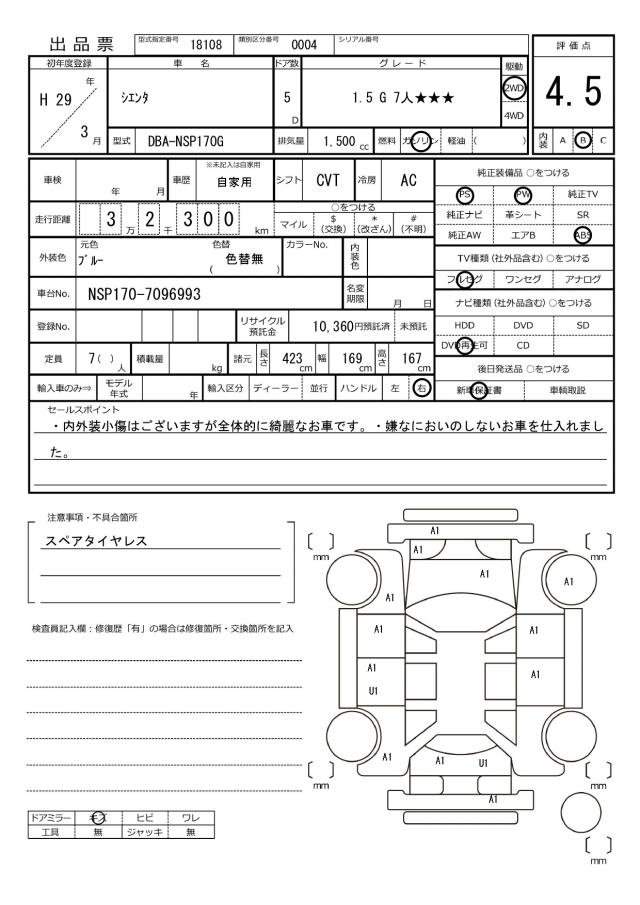 出品票 型式指定番号 18108 類別区分番号 0004 シリアル番号
評価点
4.5
内装 A B C
初年度登録 車 名 ドア数 グレード 駆動
H 29 年 3 月 シエンタ 5 D 1.5 G 7人★★★ 2WD 4WD
型式 DBA-NSP170G 排気量 1.500 cc 燃料 ガソリン 軽油 ( )
車検 年 月 車歴 ※未記入は自家用 自家用 シフト CVT 冷房 AC
走行距離 3 万 2 千 3 0 0 km ○をつける
マイル $ (交換) * (改ざん) # (不明)
外装色 元色 ブルー 色替 色替無 ( ) カラーNo. 内装色
車台No. NSP170-7096993 名変期限 月 日
登録No. リサイクル預託金 10,360円預託済 未預託
定員 7( ) 人 積載量 kg 諸元 長さ 423 cm 幅 169 cm 高さ 167 cm
輸入車のみ⇒ モデル年式 年 輸入区分 ディーラー 並行 ハンドル 左 右
純正装備品 ○をつける
PS PW 純正TV
純正ナビ 革シート SR
純正AW エアB ABS
TV種類(社外品含む) ○をつける
フルセグ ワンセグ アナログ
ナビ種類(社外品含む) ○をつける
HDD DVD SD
DVD再生可 CD
後日発送品 ○をつける
新車保証書 車輌取説
セールスポイント
・内外装小傷はございますが全体的に綺麗なお車です。・嫌なにおいのしないお車を仕入れまし
た。
注意事項・不具合箇所
スペアタイヤレス
検査員記入欄：修復歴「有」の場合は修復箇所・交換箇所を記入
ドアミラー キズ ヒビ ワレ
工具 無 ジャッキ 無
A1
〔 〕 mm A1 〔 〕 mm
A1 A1
A1
A1 A1
A1 A1
U1
A1 A1 U1
〔 〕 mm 〔 〕 mm
A1
〔 〕 mm